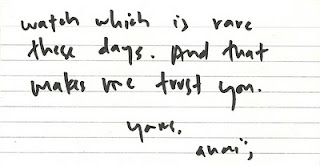 watch which is rare
these days. And that
makes me trust you.
yours,
anaï,